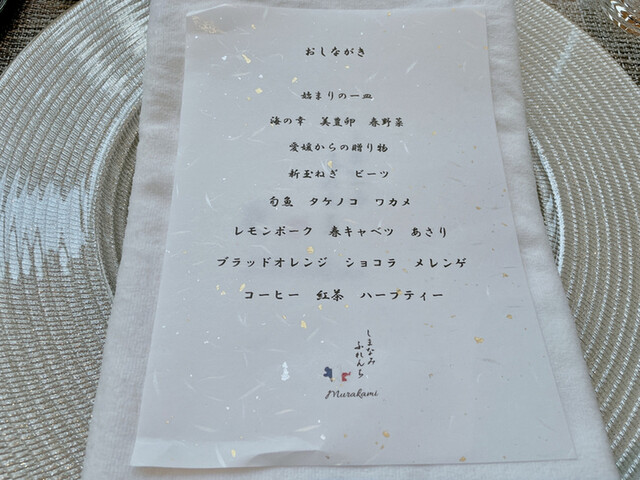 おしながき
始まりの一皿
海の幸 美豊卵 春野菜
愛媛からの贈り物
新玉ねぎ ビーツ
旬魚 タケノコ ワカメ
レモンポーク 春キャベツ あさり
ブラッドオレンジ ショコラ メレンゲ
コーヒー 紅茶 ハーブティー
しまなみ
ふれんち
Murakami